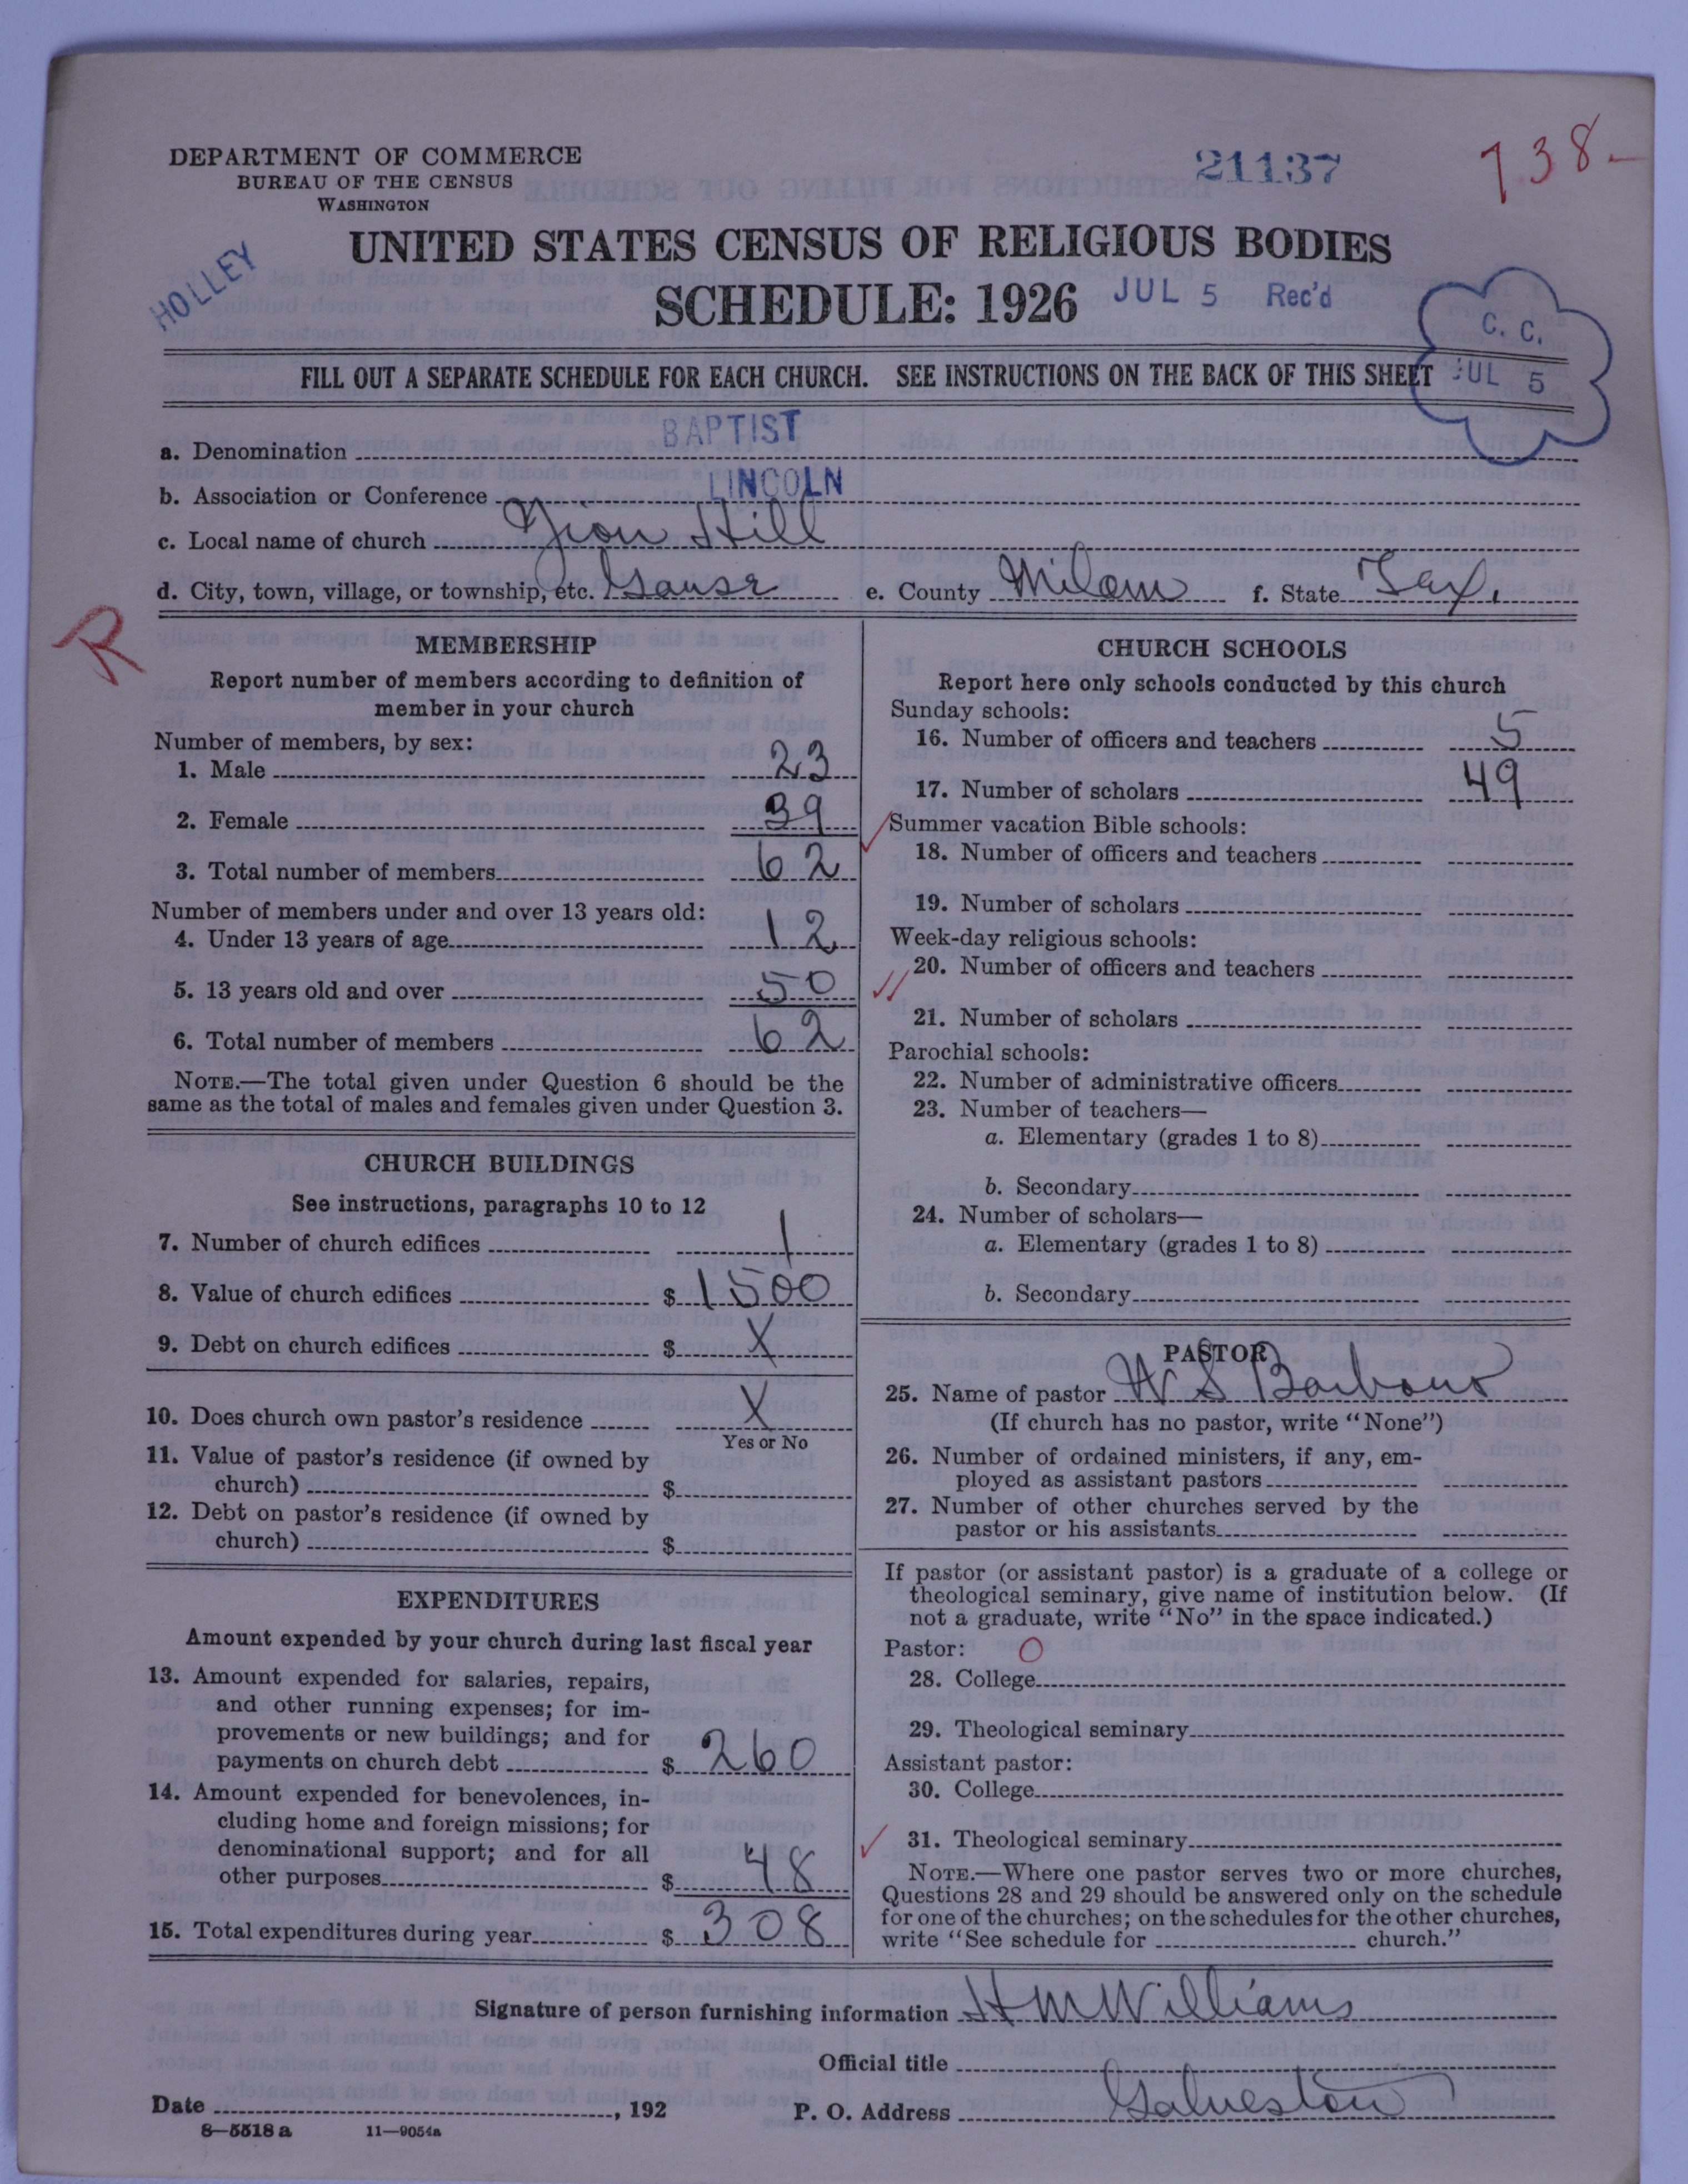 DEPARTMENT OF COMMERCE
BUREAU OF THE CENSUS
WASHINGTON
21137
738-
HOLLEY
UNITED STATES CENSUS OF RELIGIOUS BODIES
SCHEDULE: 1926
JUL 5 Rec'd
C. C.
JUL 5
FILL OUT A SEPARATE SCHEDULE FOR EACH CHURCH. SEE INSTRUCTIONS ON THE BACK OF THIS SHEET
a. Denomination BAPTIST
b. Association or Conference LINCOLN
c. Local name of church Zion Hill
d. City, town, village, or township, etc. Gause e. County Milam f. State Tex.
R
MEMBERSHIP
Report number of members according to definition of
member in your church
Number of members, by sex:
1. Male 23
2. Female 39
3. Total number of members 62
Number of members under and over 13 years old:
4. Under 13 years of age 12
5. 13 years old and over 50
6. Total number of members 62
NOTE.—The total given under Question 6 should be the
same as the total of males and females given under Question 3.
CHURCH BUILDINGS
See instructions, paragraphs 10 to 12
7. Number of church edifices 1
8. Value of church edifices $ 1500
9. Debt on church edifices $ X
10. Does church own pastor's residence X
Yes or No
11. Value of pastor's residence (if owned by
church) $
12. Debt on pastor's residence (if owned by
church) $
EXPENDITURES
Amount expended by your church during last fiscal year
13. Amount expended for salaries, repairs,
and other running expenses; for im-
provements or new buildings; and for
payments on church debt $ 260
14. Amount expended for benevolences, in-
cluding home and foreign missions; for
denominational support; and for all
other purposes $ 48
15. Total expenditures during year $ 308
CHURCH SCHOOLS
Report here only schools conducted by this church
Sunday schools:
16. Number of officers and teachers 5
17. Number of scholars 49
Summer vacation Bible schools:
18. Number of officers and teachers
19. Number of scholars
Week-day religious schools:
20. Number of officers and teachers
21. Number of scholars
Parochial schools:
22. Number of administrative officers
23. Number of teachers—
a. Elementary (grades 1 to 8)
b. Secondary
24. Number of scholars—
a. Elementary (grades 1 to 8)
b. Secondary
PASTOR
25. Name of pastor W S Barbour
(If church has no pastor, write "None")
26. Number of ordained ministers, if any, em-
ployed as assistant pastors
27. Number of other churches served by the
pastor or his assistants
If pastor (or assistant pastor) is a graduate of a college or
theological seminary, give name of institution below. (If
not a graduate, write "No" in the space indicated.)
Pastor: O
28. College
29. Theological seminary
Assistant pastor:
30. College
31. Theological seminary
NOTE.—Where one pastor serves two or more churches,
Questions 28 and 29 should be answered only on the schedule
for one of the churches; on the schedules for the other churches,
write "See schedule for church."
Signature of person furnishing information H M Williams
Official title
Date , 192
P. O. Address Galveston
8—5518 a 11—9054a